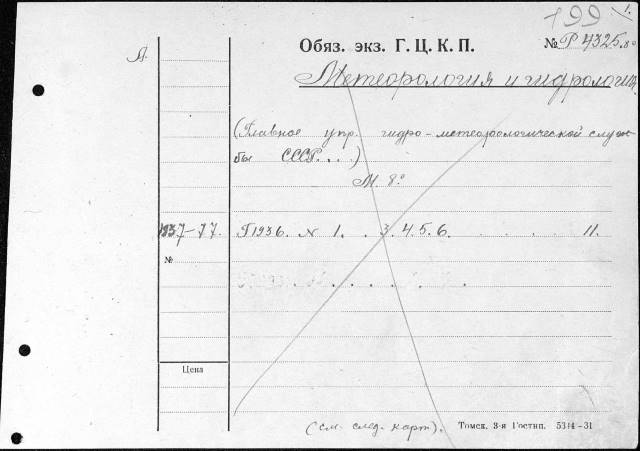 199 1.
Обяз. экз. Г. Ц. К. П. № Р 4325.8°
А.
Метеорология и гидрология.
(Главное упр. гидро-метеорологической служ
бы СССР. . .)
М. 8°
1937-77. Г1936. № 1. . 3. 4. 5. 6. . . . . 11.
№
Цена
(см. след. карт).
Томск. 3-я Гостип. 5344-31